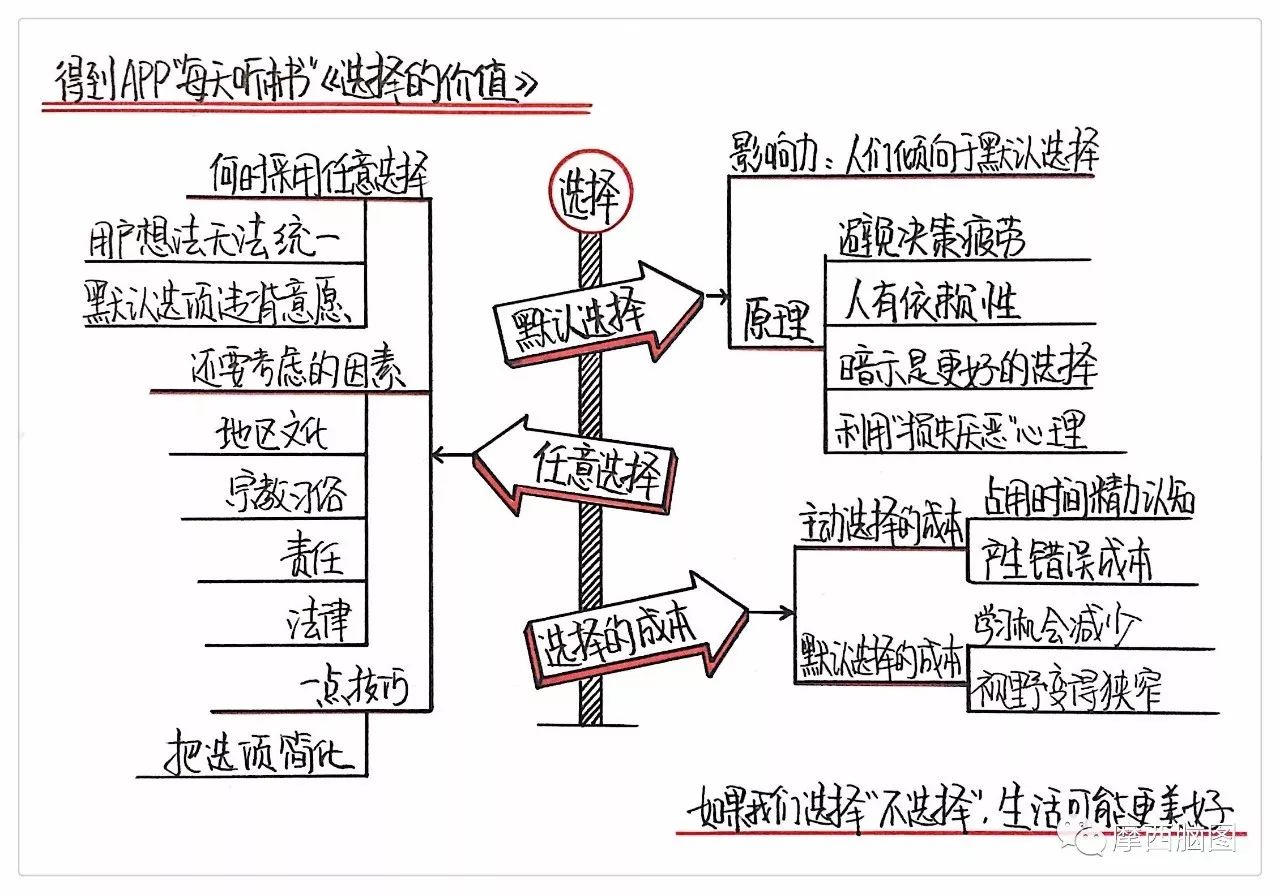 得到APP“每天听本书”《选择的价值》
选择
默认选择
影响力：人们倾向于默认选择
原理
避免决策疲劳
人有依赖性
暗示是更好的选择
利用“损失厌恶”心理
任意选择
何时采用任意选择
用户想法无法统一
默认选项违背意愿
还要考虑的因素
地区文化
宗教习俗
责任
法律
一点技巧
把选项简化
选择的成本
主动选择的成本
占用时间精力认知
产生错误成本
默认选择的成本
学习机会减少
视野变得狭窄
如果我们选择“不选择”，生活可能更美好
摩西脑图